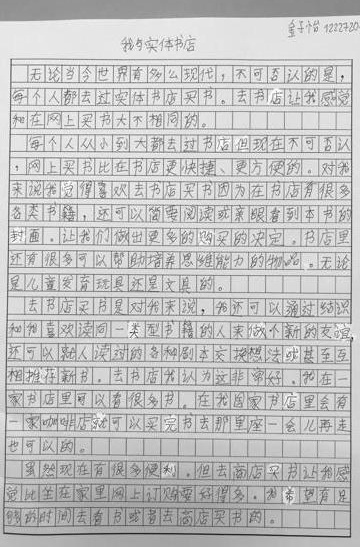 1222720
我与实体书店
无论当今世界有多么现代，不可否认的是，
每个人都去过实体书店买书。去书店让我感觉
和在网上买书大不相同的。
每个人从小到大都去过书店但现在不可否认
，网上买书比在书店更快捷、更方便的。对我
来说我觉得喜欢去书店买书因为在书店有很多
各类书籍，还可以简要阅读或亲眼看到本书的
封面。让我们做出更多的购买的决定。书店里
还有很多可以帮助培养思维能力的物品。无论
是儿童发育玩具还是文具的。
去书店买书是对我来说，我还可以通过结识
和我喜欢读同一类型书籍的人来做个新的友谊，
还可以就人读过的各种剧本交换想法或甚至互
相推荐新书。去书店我认为这非常好。我在一
家书店里可以有很多书。在我国家书店里会有
一家咖啡店就可以买完书去那里座一会儿再走
也可以的。
虽然现在有很多便利。但去商店买书让我感
觉比坐在家里网上订购要好得多。为希望有足
够的时间去看书或者去商店买书的。